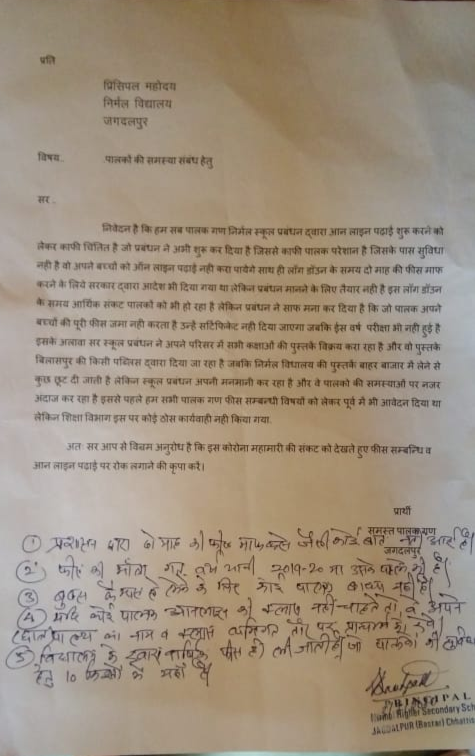 प्रति
प्रिंसिपल महोदय
निर्मल विद्यालय
जगदलपुर
विषय . पालकों की समस्या संबंध हेतु
सर .
निवेदन है कि हम सब पालक गण निर्मल स्कूल प्रबंधन द्वारा आन लाइन पढ़ाई शुरू करने को
लेकर काफी चिंतित है जो प्रबंधन ने अभी शुरू कर दिया है जिससे काफी पालक परेशान है जिसके पास सुविधा
नही है वो अपने बच्चों को ऑन लाइन पढ़ाई नही करा पायेगे साथ ही लॉग डॉउन के समय दो माह की फीस माफ
करने के लिये सरकार द्वारा आदेश भी दिया गया था लेकिन प्रबंधन मानने के लिए तैयार नही है इस लॉग डॉउन
के समय आर्थिक संकट पालकों को भी हो रहा है लेकिन प्रबंधन ने साफ मना कर दिया है कि जो पालक अपने
बच्चों की पूरी फीस जमा नही करता है उन्हे सर्टिफिकेट नही दिया जाएगा जबकि ईस वर्ष परीक्षा भी नही हुई है
इसके अलावा सर स्कूल प्रबंधन ने अपने परिसर में सभी कक्षाओं की पुस्तकें विक्रय करा रहा है और वो पुस्तके
बिलासपुर की किसी पब्लिस द्वारा दिया जा रहा है जबकि निर्मल विधालय की पुस्तकें बाहर बाजार मे लेने से
कुछ छूट दी जाती है लेकिन स्कूल प्रबंधन अपनी मनमानी कर रहा है और वे पालको की समस्याओं पर नजर
अंदाज कर रहा है इससे पहले हम सभी पालक गण फीस सम्बन्धी विषयों को लेकर पूर्व में भी आवेदन दिया था
लेकिन शिक्षा विभाग इस पर कोई ठोस कार्यवाही नही किया गया.
अतः सर आप से विनम्र अनुरोध है कि इस कोरोना महामारी की संकट को देखते हुए फीस सम्बन्धि व
आन लाइन पढ़ाई पर रोक लगाने की कृपा करें।
प्रार्थी
समस्त पालकगण
जगदलपुर
① प्रशासन द्वारा दो माह की फीस माफ करने जैसी कोई बात नहीं आई है।
② फीस की माँग गत 2019-20 या उसके पहले की है।
③ बुक्स लेने के लिए कोई पालक बाध्य नहीं है।
④ यदि कोई पालक ऑनलाइन की क्लास नहीं चाहते तो, वे अपने
का नाम व क्लास व्यक्तिगत तौर पर प्राचार्य को देवें।
⑤ विद्यालय के द्वारा वार्षिक फीस ही ली जाती है, जो पालकों की सुविधा
हेतु 10 किस्तों में
PRINCIPAL
Nirmal Higher Secondary Sch
JAGDALPUR (Bastar) Chhattis